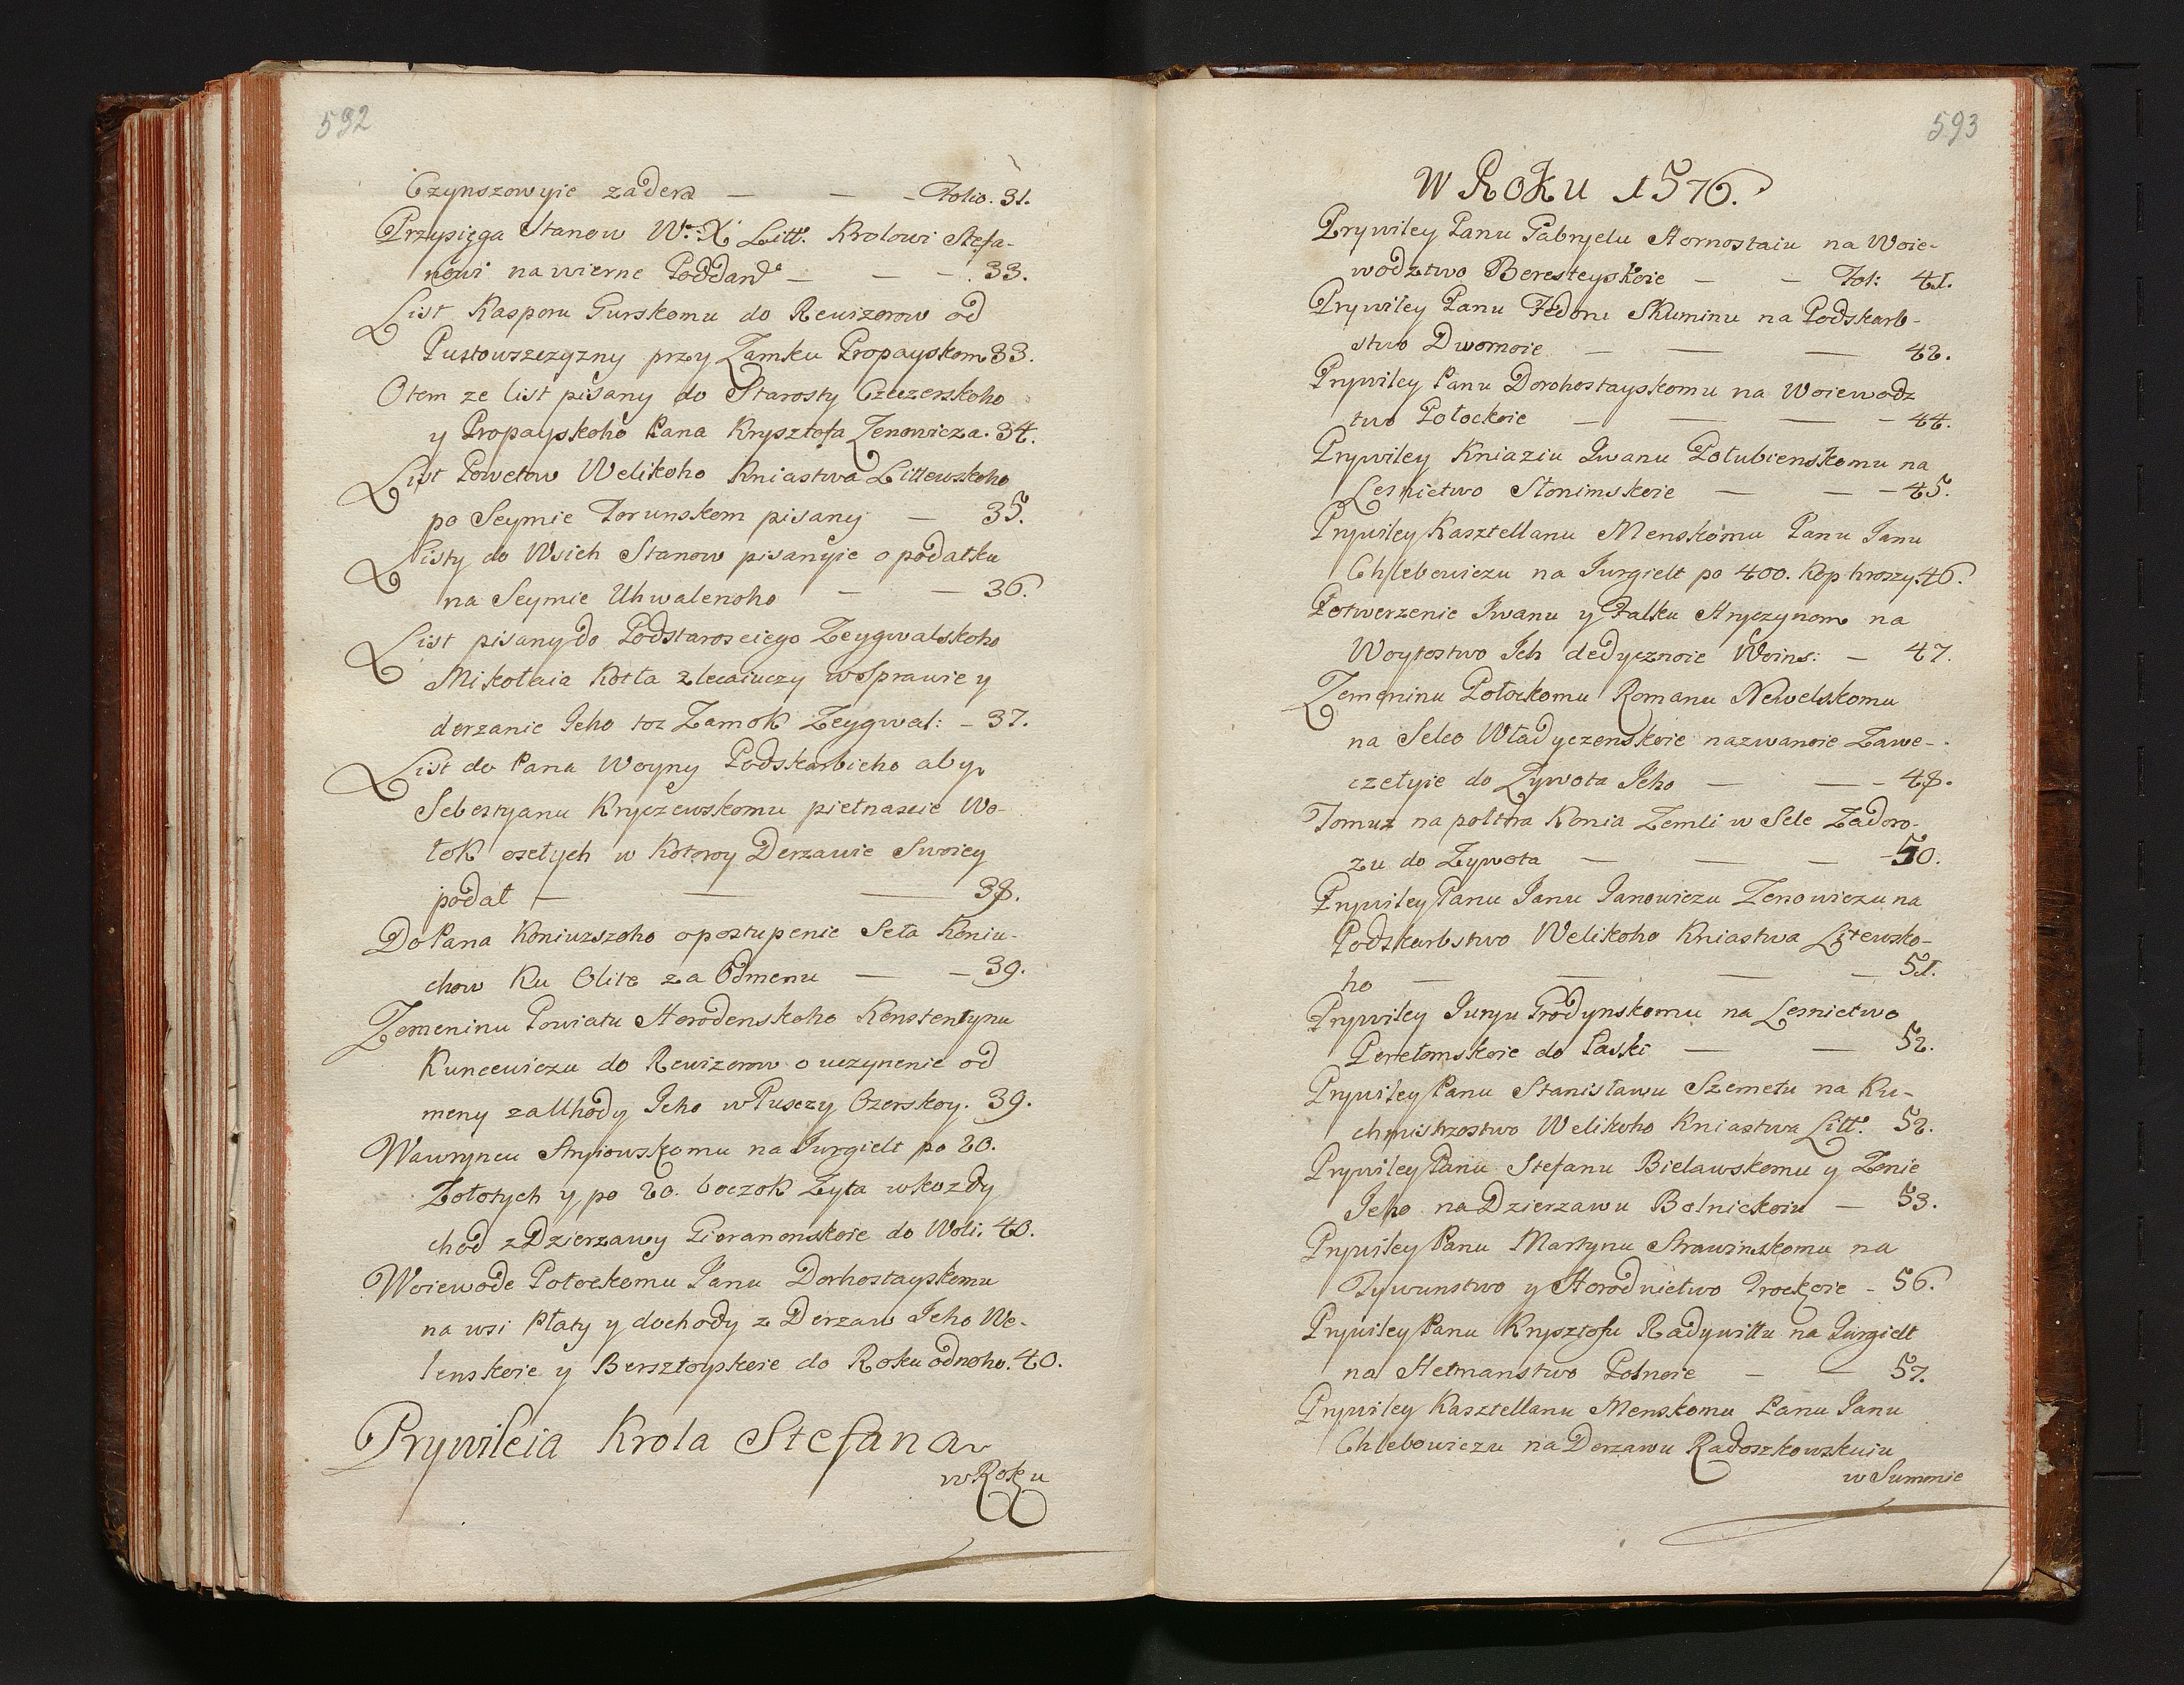 592
Czynszowyie zadera — — - Folio. 31.
Przysięga Stanow W. X. Litt. Krolowi Stefa-
nowi na wierne Poddand° — — - 33.
List Kasporu Gurskomu do Rewizorow od
Pustowszczyzny przy Zamku Propayskom 33.
O tem ze list pisany do Starosty Czeczerskoho
y Propayskoho Pana Krysztofa Zenowicza. 34.
List Powetow Welikoho Kniastwa Littewskoho
po Seymie Torunskom pisany — 35.
Listy do Wsich Stanow pisanyie o podatku
na Seymie Uhwalenoho — — 36.
List pisany do Podstarosciego Zeygwalskoho
Mikołaia Kotła zlecaiuczy w Sprawie y
derzanie Jeho toz Zamok Zeygwal: - 37.
List do Pana Woyny Podskarbieho aby
Sebestyanu Kryczewskomu pietnascie Wo-
łok osełych w Kotoroy Derzawie Swoiey
podał — — — 38.
Do Pana Koniuszoho o postupenie Seła Koniu-
chow Ku Olite za Odmenu — - 39.
Zemeninu Powiatu Horodenskoho Konstentynu
Kuncewiczu do Rewizorow o uczynenie od
meny za Uhody Jeho w Pusczy Ozerskoy. 39.
Wawryncu Stryiowskomu na Jurgielt po 20.
Zołotych y po 20. boczok Zyta w kozdy
chod z Dzierzawy Gieranonskoie do Woli. 40.
Woiewode Połockomu Panu Dorhostayskomu
na wsi Płaty y dochody z Derzaw Jeho We-
lenskoie y Bersztoyskoie do Roku odnoho. 40.
Prywileia Krola Stefana
w Roku
593
W Roku 1576.
Prywiley Panu Gabryelu Hornostaiu na Woie-
wodztwo Beresteyskoie — - Fol: 41.
Prywiley Panu Fedoru Skuminu na Podskarb-
stwo Dwornoie — — — 42.
Prywiley Panu Dorohostayskomu na Woiewodz
two Połockoie — — — - 44.
Prywiley Kniaziu Iwanu Połubienskomu na
Lesnictwo Słonimskoie — — - 45.
Prywiley Kasztellanu Menskomu Panu Janu
Chlebowiczu na Jurgielt po 400. kop hroszy. 46.
Potwerzenie Iwanu y Falku Hryczynom na
Woytostwo Ich dedycznoie Woins: — 47.
Zemeninu Połockomu Romanu Newelskomu
na Seleo Władyczenskoie nazwanoie Zawe-
czełyie do Zywota Jeho — — - 48.
Tomuz na poltra Konia Zemli w Sele Zadoro-
zu do Zywota — — — - 50.
Prywiley Panu Janu Janowiczu Zenowiczu na
Podskarbstwo Welikoho Kniastwa Litewsko-
ho — — — — 51.
Prywiley Juryu Grodynskomu na Lesnictwo
Perełomskoie do Łaski — — 52.
Prywiley Panu Stanisławu Szemetu na Ku-
chmistrzostwo Welikoho Kniastwa Litt. 52.
Prywiley Panu Stefanu Bielawskomu y Zenie
Jeho na Dzierzawu Bolnickoiu — 53.
Prywiley Panu Martynu Strawinzkomu na
Tywunstwo y Horodnictwo Trockoie - 56.
Prywiley Panu Krysztofu Radywiłłu na Jurgielt
na Hetmanstwo Polnoie — — 57.
Prywiley Kasztellanu Menskomu Panu Janu
Chlebowiczu na Derzawu Radoszkowskuiu
w Summie